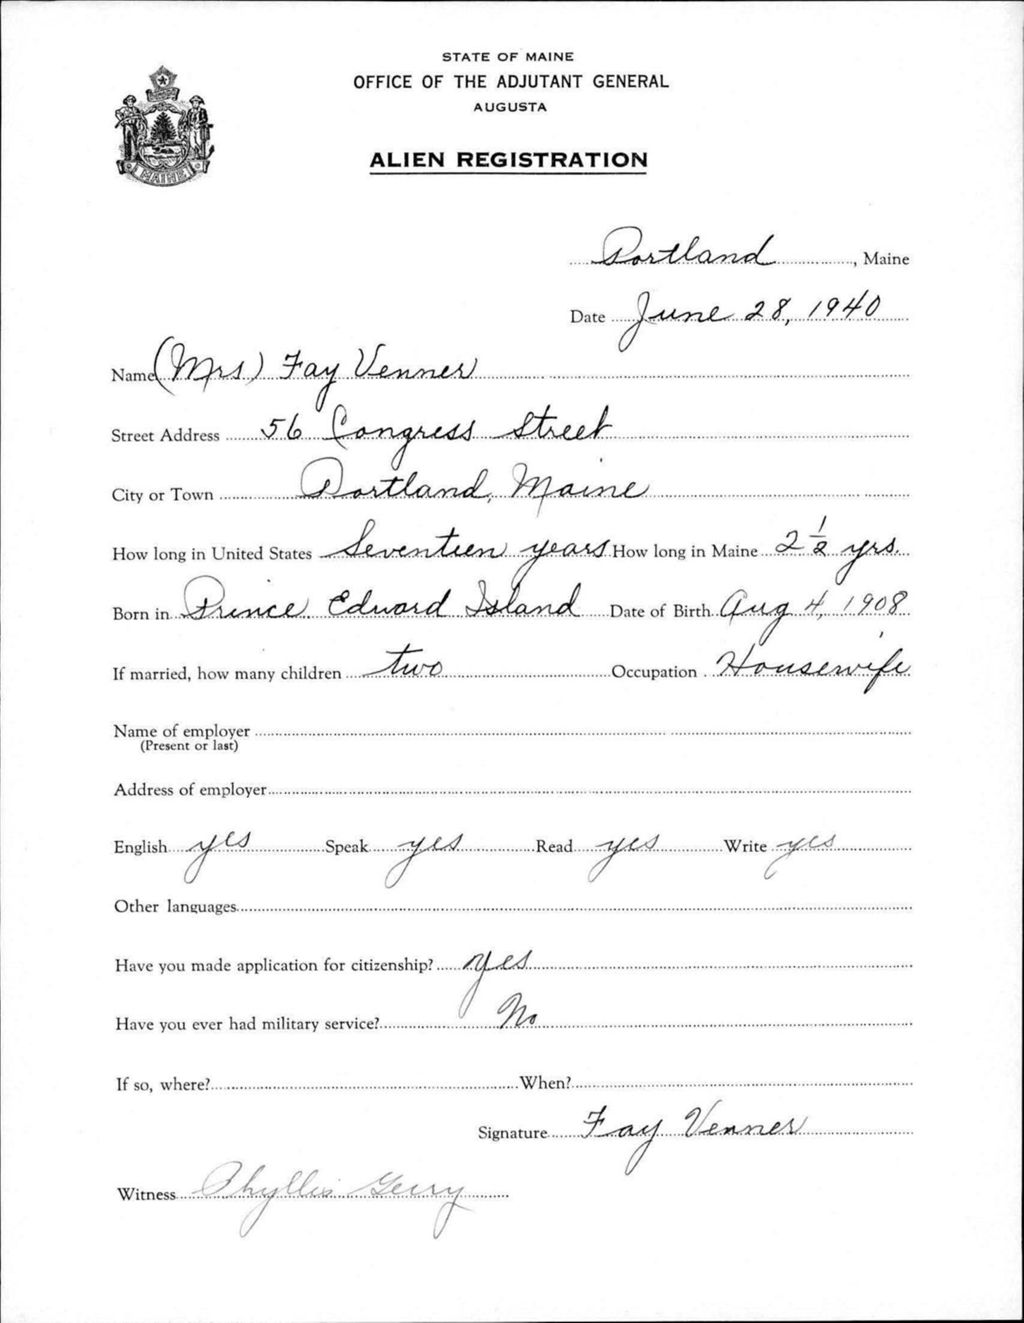 STATE OF MAINE
OFFICE OF THE ADJUTANT GENERAL
AUGUSTA
ALIEN REGISTRATION
MAINE
Portland, Maine
Date June 28, 1940
Name (Mrs) Fay Venner
Street Address 56 Congress Street
City or Town Portland, Maine
How long in United States Seventeen years How long in Maine 2 1/2 yrs.
Born in Prince Edward Island Date of Birth Aug 4, 1908
If married, how many children two Occupation Housewife
Name of employer
(Present or last)
Address of employer
English yes Speak yes Read yes Write yes
Other languages
Have you made application for citizenship? yes
Have you ever had military service? No
If so, where? When?
Signature Fay Venner
Witness Phyllis Gerry